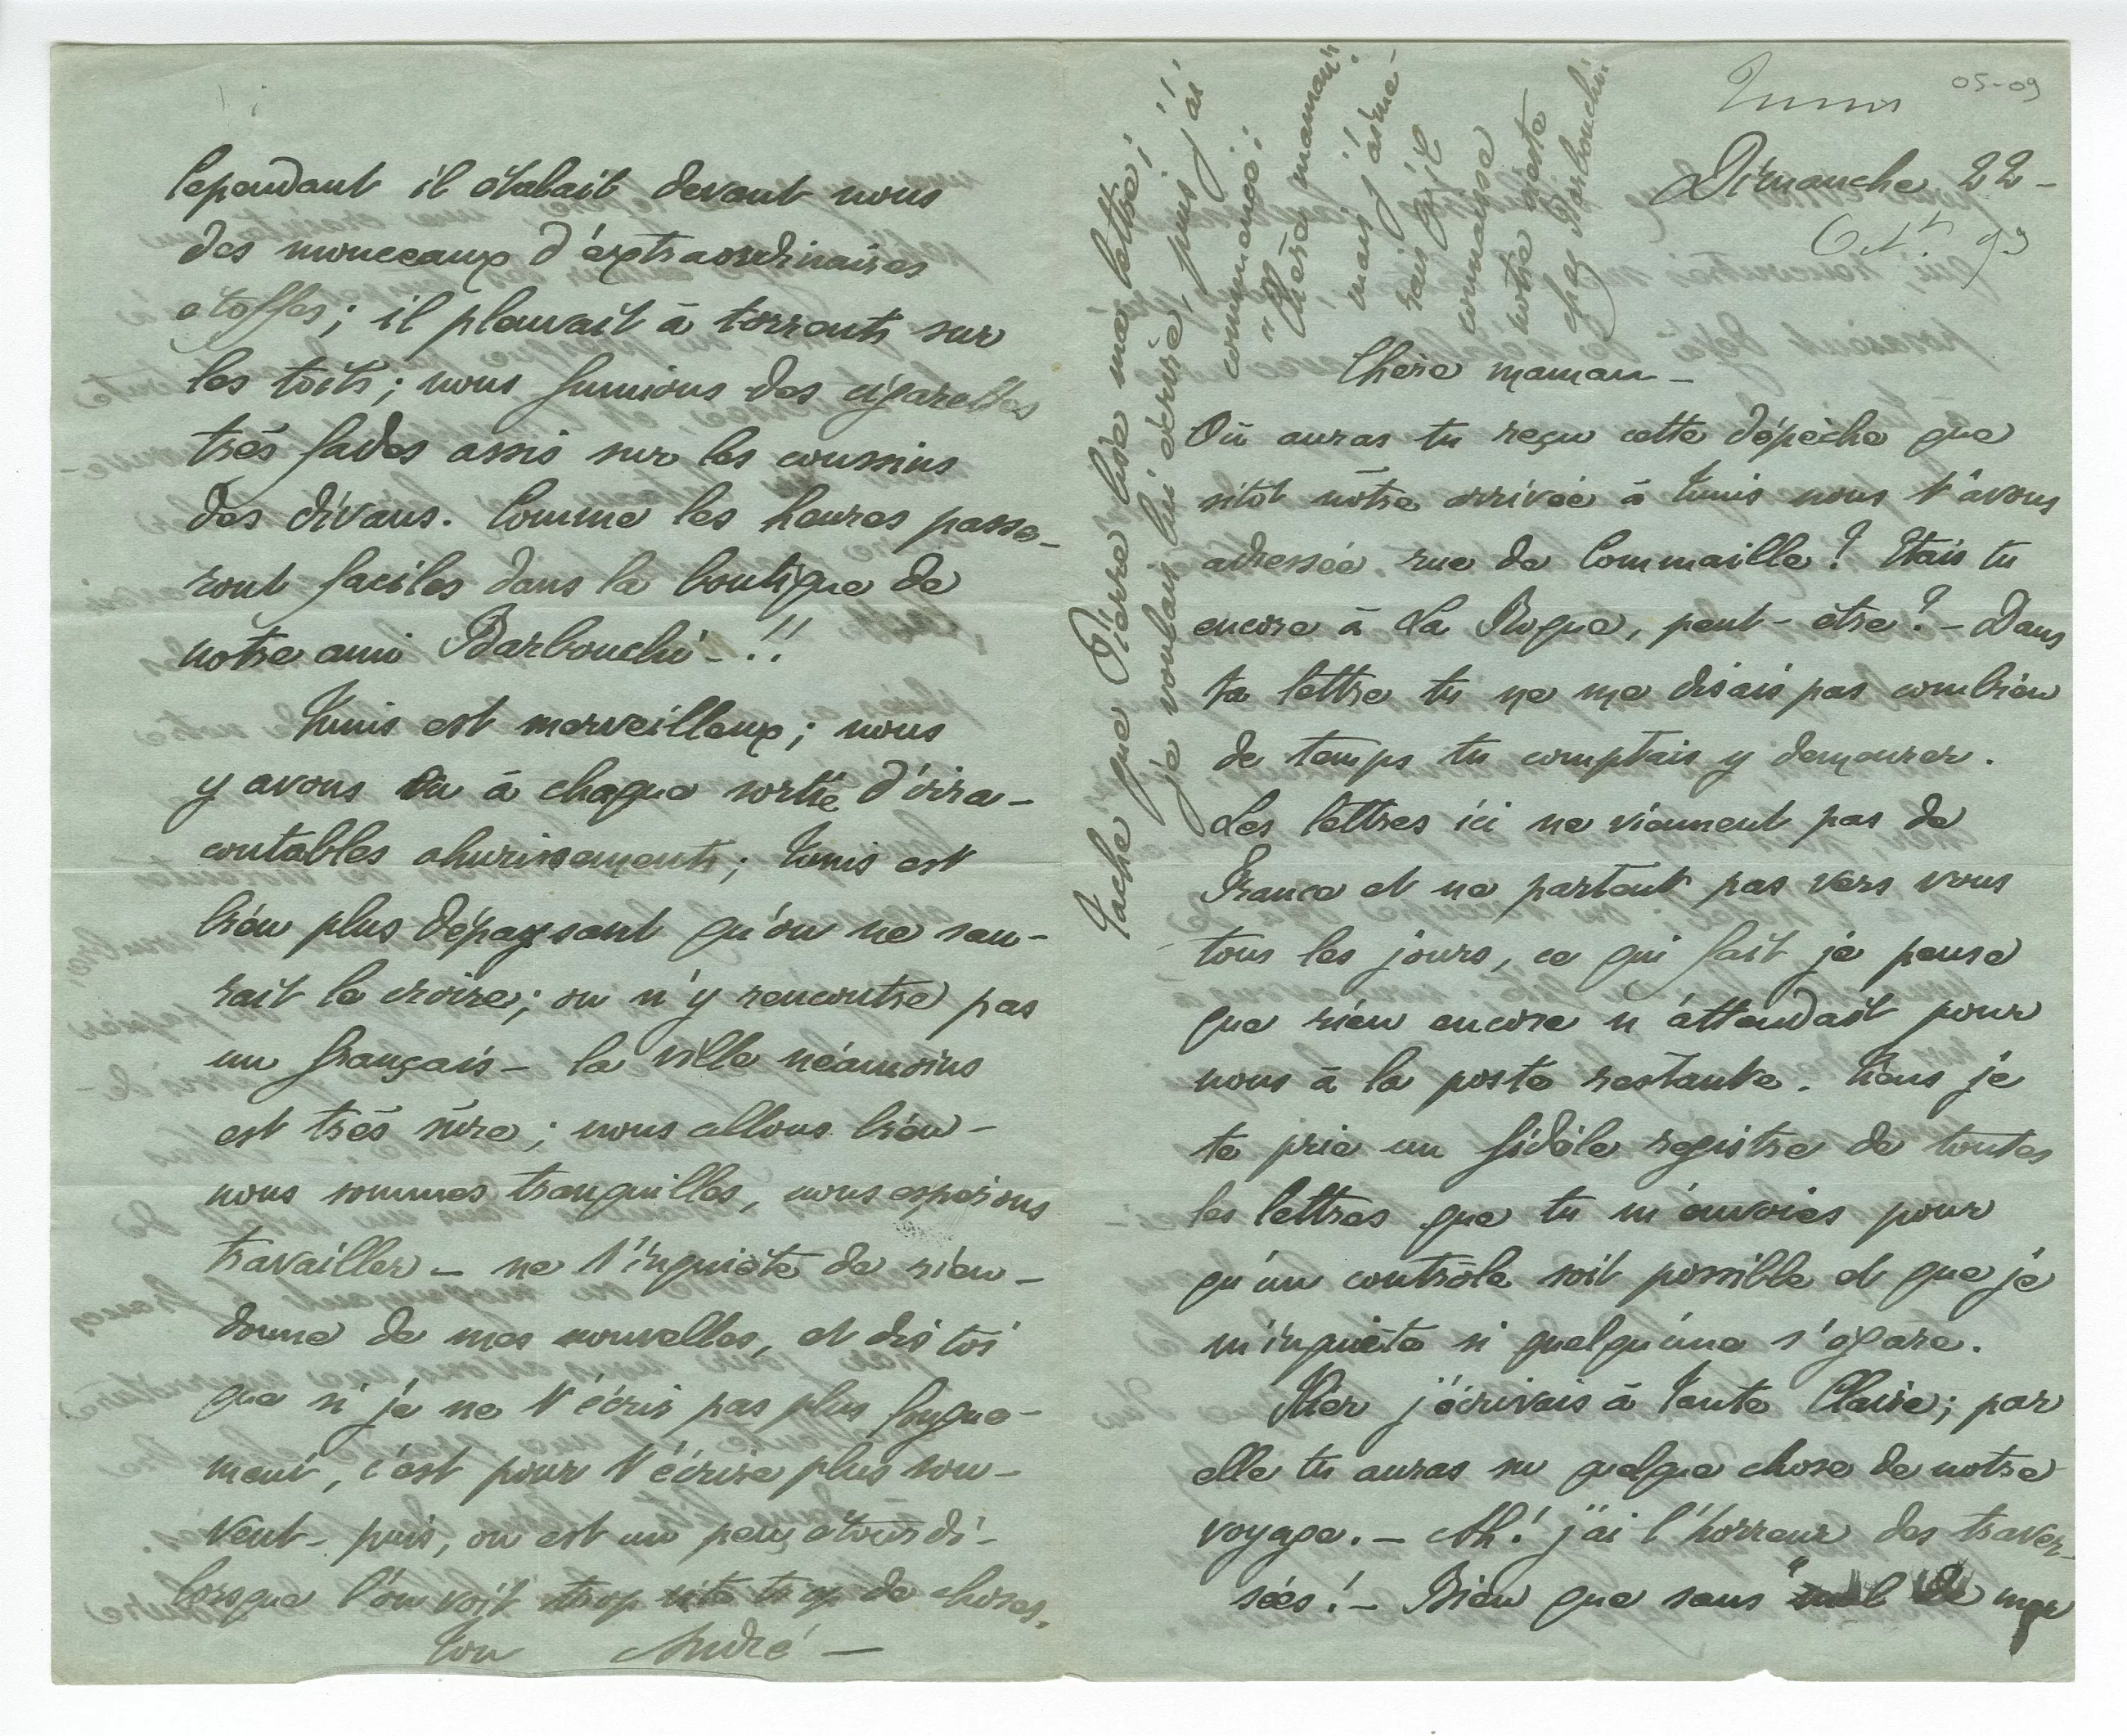 Tunis
05-09
Dimanche 22 -
Oct. 93
Chère maman -
Où auras tu reçu cette dépêche que
sitôt nôtre arrivée à Tunis nous t'avons
adressée rue de Commaille ? Etais tu
encore à La Roque, peut-être ? - Dans
ta lettre tu ne me disais pas combien
de temps tu comptais y demeurer.
Les lettres ici ne viennent pas de
France et ne partent pas vers vous
tous les jours, ce qui fait je pense
que rien encore n'attendait pour
nous à la poste restante. Tiens je
te prie un fidèle registre de toutes
les lettres que tu m'envoies pour
qu'un contrôle soit possible et que je
m'inquiète si quelqu'une s'égare.
Hier j'écrivais à Tante Claire ; par
elle tu auras su quelque chose de notre
voyage. - Ah ! j'ai l'horreur des traver-
sées ! - Bien que sans "mal de mer
Cependant il étalait devant nous
des monceaux d'extraordinaires
étoffes ; il pleuvait à torrents sur
les toits ; nous fumions des cigarettes
très fades assis sur les coussins
des divans. Comme les heures passe-
ront faciles dans la boutique de
notre ami Barbouchi - !!
Tunis est merveilleux ; nous
y avons vu à chaque sortie d'inra-
contables ahurissements ; Tunis est
bien plus dépaysant qu'on ne sau-
rait le croire ; on n'y rencontre pas
un français - la ville néamoins
est très sûre ; nous allons bien -
nous sommes tranquilles, nous espérons
travailler - ne t'inquiète de rien -
donne de mes nouvelles, et dis toi
que si je ne t'écris pas plus longue-
ment, c'est pour t'écrire plus sou-
vent - puis, on est un peu étourdi -
lorsque l'on voit trop vite trop de choses.
ton André -
Tache que Pierre lise ma lettre ;
je voulais lui écrire, puis j'ai
commencé :
"Chère maman"
mais j'aime-
rais qu'il
connaisse
notre sieste
chez Barbouchi.